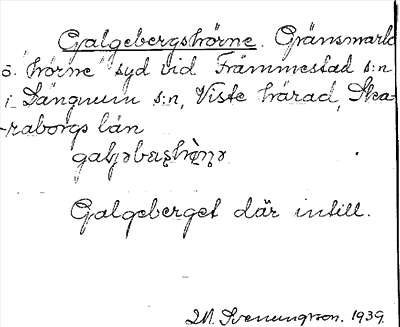 Galgebergshörne. Gränsmark
o. "hörne" syd vid Främmestad s:n
i Längnum s:n, Viste härad, Ska-
-raborgs län
Galgeberget där intill.
Svenungsson. 1939.